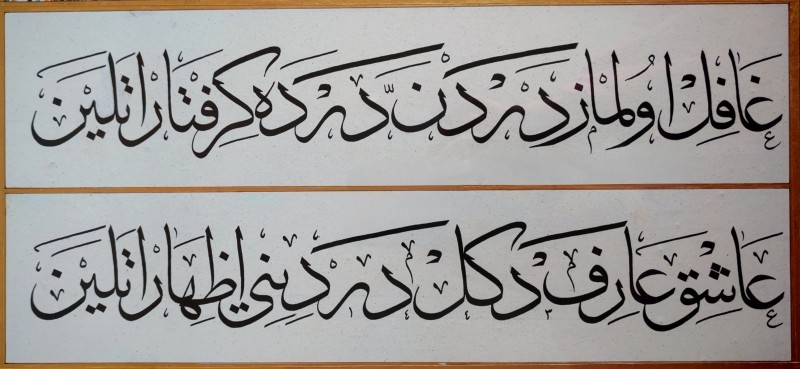 غافل اولماز دردن درده كرفتار ايلين
عاشق عارف دكل درديني اظهار ايلين